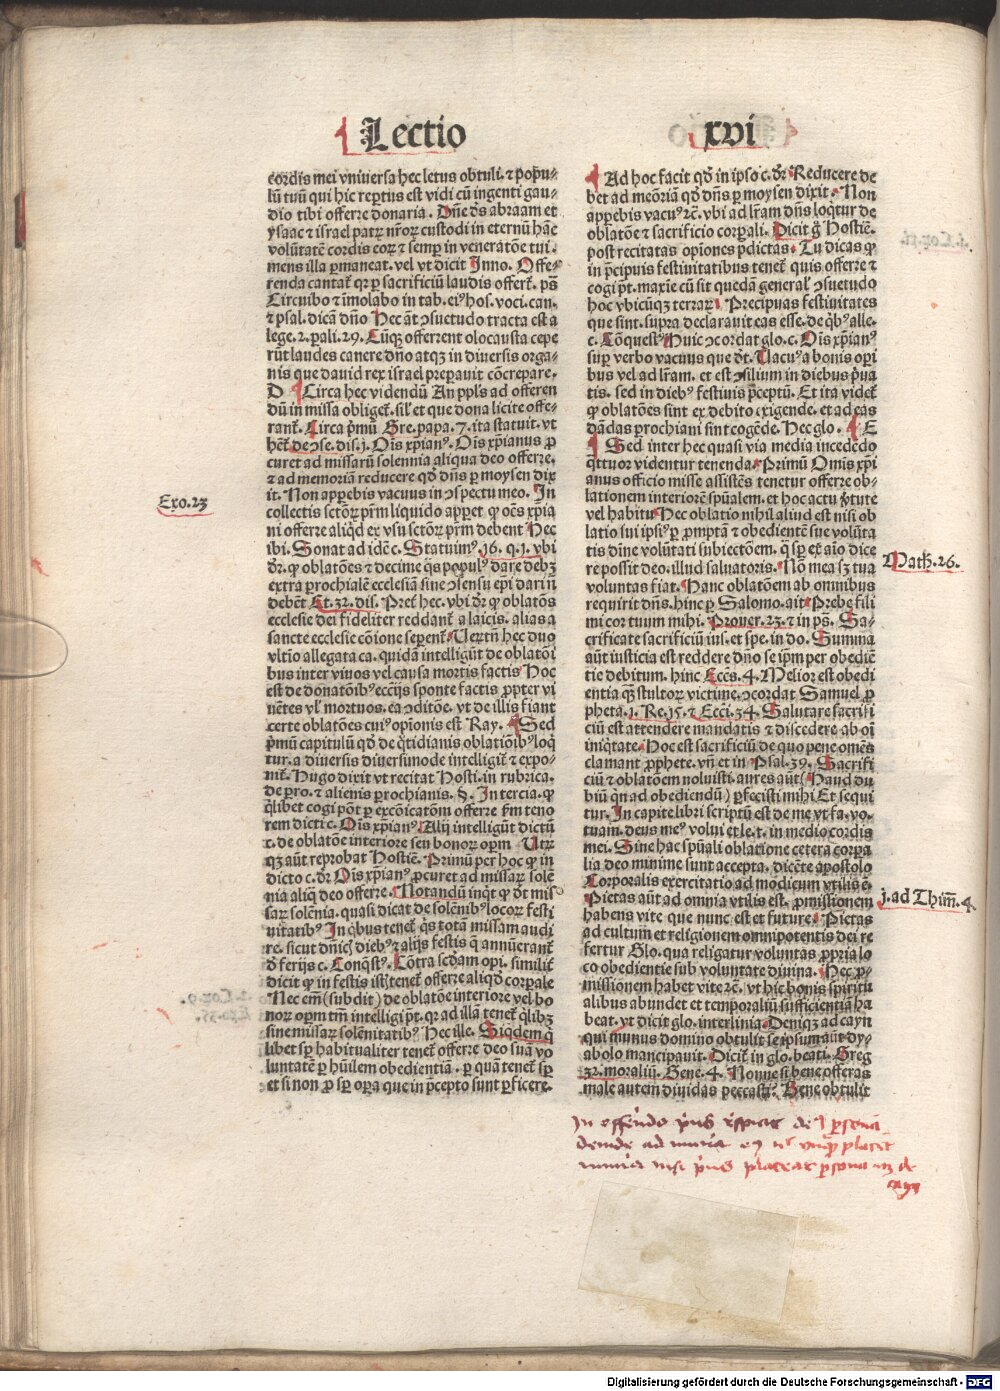 Lectio
xvi
cordis mei vniuersa hec letus obtuli. ⁊ popu-
lū tuū qui hic reptus est vidi cū ingenti gau-
dio tibi offerre donaria. Dn̄e ds̄ abraam et
ysaac ⁊ israel patꝝ nr̄oꝝ custodi in eternū hāc
volūtatē cordis coꝝ ⁊ semꝑ in veneratōne tui.
mens illa ꝑmaneat. vel vt dicit Inno. Offe-
renda cantat̄ qꝛ ꝑ sacrificiū laudis offert̄. ps̄
Circuibo ⁊ īmolabo in tab. eiꝰ hos. voci. can.
⁊ psal. dicā dn̄o Hec āt ꝯsuetudo tracta est a
lege. 2. ꝑali. 29. Cūqꝫ offerrent olocausta cepe
rūt laudes canere dn̄o atqꝫ in diuersis orga-
nis que dauid rex israel preparauit cōcrepare.
D ¶ Circa hec videndū An ppl̄s ad offeren
dū in missa obliget̄. sil̓ et que dona licite offe-
rant̄. Circa pͥmū Gre. papa. 7. ita statuit. vt
het̄ de ꝯse. dis. j. Oīs xp̄ianꝰ. Oīs xp̄ianus ꝓ
curet ad missaꝝ solennia aliqua deo offerre.
⁊ ad memoriā reducere qd̓ dn̄s ꝑ moysen dix
it. Non apꝑebis vacuus in ꝯspectu meo. In
collectis sctōꝝ pr̄m liquido apꝑet ꝙ oēs xp̄ia
ni offerre aliqd̓ ex vsu sctōꝝ pr̄m debent Hec
ibi. Sonat ad idē c. Statuimꝰ. 16. q. 1. vbi
dr̄. ꝙ oblatōes ⁊ decime qͣs popul̓ꝰ dare debꝫ
extra ꝑochialē ecclesiā sine ꝯsensu epī dari n̄
debēt Et. 32. dis. Pret̓ hec. vbi dr̄ ꝙ oblatōs
ecclesie dei fideliter reddant̄ a laicis. alias a
sancte ecclesie cōione seꝑent̄. Ueꝝtn̄ hec duo
vltīo allegata ca. quidā intelligūt de oblatōi
bus inter viuos vel causa mortis factis Hoc
est de donatōibꝰ ecc̄ijs sponte factis ꝓpter vi
uētes vl̓ mortuos. ea ꝯditōe. vt de illis fiant
certe oblatōes cuiꝰ opionis est Ray. ¶ Sed
pͥmū capitulū qd̓ de qͦtidianis oblatiōibꝰ loqͥ
tur. a diuersis diuersimode intelligit̄ ⁊ expo-
nit̄. Hugo dixit vt recitat Hosti. in rubrica.
de ꝑro. ⁊ alienis ꝑrochianis. §. In tercia. ꝙ
qͥlibet cogi pōt ꝑ excōicatōm offerre ẜm teno
rem dicti c. Oīs xp̄ianꝰ. Alij intelligūt dictū
c. de oblatōe interiore seu bonoꝝ opm̄ Utrū
qꝫ aūt reprobat Hostiē. Primū per hoc ꝙ in
dicto c. dr̄ Oīs xp̄ianꝰ ꝓcuret ad missaꝝ solē
nia aliqͥ deo offerre. Notandū inqͥt ꝙ dt̄ mis
saꝝ solēnia. quasi dicat de solēnibꝰ locoꝝ festi
uitatibꝰ In qͥbus tenet̄ qͥs totā missam audi
re. sicut dn̄icis diebꝰ ⁊ alijs festis q̄ annūerant̄
d̓ ferijs c. Conqͤstꝰ. Cōtra scd̄am opi. similit̓
dicit ꝙ in festis ist̓ tenet̄ offerre aliqd̓ corꝑale
Nec em̄ (subdit) de oblatōe interiore vel bo
noꝝ opm tm̄ intelligi pt. qꝛ ad illā tenet̄ qͥlibꝫ
sine missaꝝ solēnitatibꝰ Hec ille. Siqͥdem qͥ
libet sꝑ habitualiter tenet̄ offerre deo suā vo
luntatē ꝑ hūilem obedientiā. ꝑ quā tenet̄ sꝑ
et si non ꝓ sꝑ oꝑa que in p̄cepto sunt ꝑficere.
¶ Ad hoc facit qd̓ in ipso c. dr̄ Reducere de
bet ad meōriā qd̓ dn̄s ꝑ moysen dixit. Non
apꝑebis vacuꝰ ⁊c̄. vbi ad lr̄am dn̄s loqͥtur de
oblatōe ⁊ sacrificio corꝑali. Dicit g̓ Hostiē.
post recitatas opiones p̄dictas. Tu dicas ꝙ
in p̄cipuis festiuitatibus tenet̄ quis offerre ⁊
cogi pt. maxie cū sit quedā general̓ ꝯsuetudo
hoc vbicūqꝫ terraꝝ. Precipuas festiuitates
que sint. supra declarauit eas esse. de qͥbꝰ alle.
c. Cōquestꝰ Huic ꝯcordat glo. c. Oīs xp̄ianꝰ
suꝑ verbo vacuus que dt̄. Uacuꝰ a bonis oꝑi
bus vel ad lr̄am. et est ꝯsilium in diebus pͥua
tis. sed in diebꝰ festiuis p̄ceptū. Et ita videt̄
ꝙ oblatōes sint ex debito exigende. et ad eas
dādas ꝑrochiani sint cogēde. Hec glo. ¶ E
¶ Sed inter hec quasi via media incedēdo
qͣttuor videntur tenenda. Primū Omīs xp̄i
anus officio misse assistēs tenetur offerre ob-
lationem interiorē spūalem. et hoc actu ꝟtute
vel habitu Hec oblatio nihil aliud est nisi ob
latio sui ipsiꝰ ꝑ ꝓmptā ⁊ obedientē sue volūta
tis dīne volūtati subiectōem. qͣ sꝑ et̄ aīo dice
re possit deo. illud saluatoris. Nō mea sꝫ tua
voluntas fiat. Hanc oblatōem ab omnibus
requirit dn̄s. hinc ꝑ Salomo. ait Prebe fili
mi cor tuum mihi. Prouer. 23. ⁊ in ps̄. Sa-
crificate sacrificiū ius. et spe. in do. Summa
aūt iusticia est reddere dn̄o se ip̄m per obediē
tie debitum. hinc Eccs̄. 4. Melior est obedi
entia qͣꝫ stultoꝝ victime. ꝯcordat Samuel ꝓ
pheta. 1. Re. 15. ⁊ Ecci. 34. Salutare sacrifi
ciū est attendere mandatis ⁊ discedere ab oī
iniqͥtate. Hoc est sacrificiū de quo pene omēs
clamant ꝓphete. vn̄ et in Psal. 39. Sacrifi
ciū ⁊ oblatōem noluisti. aures aūt (Haud du
biū qͥn ad obediendū) ꝑfecisti mihi Et sequi
tur. In capite libri scriptū est de me vt fa. vo.
tuam. deus meꝰ volui et le. t. in medio cordis
mei. Sine hac spūali oblatione cetera corꝑa
lia deo minime sunt accepta. dicēte apostolo
Corporalis exercitatio ad modicum vtilis ē.
Pietas aūt ad omnia vtilis est. ꝓmissionem
habens vite que nunc est et future. Pietas
ad cultum et religionem omnipotentis dei re
fertur Glo. qua religatur voluntas ꝓpria lo
co obedientie sub voluntate diuina. Hec ꝓ-
missionem habet vite ⁊c̄. vt hic bonis spiritu
alibus abundet et temporaliū sufficientiā ha
beat. vt dicit glo. interlinia. Deniqꝫ ad cayn
qui munus domino obtulit se ipsum aūt dy-
abolo mancipauit. Dicit̄ in glo. beati. Greg
32. moraliū. Gene. 4. Nonne si bene offeras
male autem diuidas peccasti. Bene obtulit
Exo. 23
Math. 26.
j. ad Thim̄. 4
Digitalisierung gefördert durch die Deutsche Forschungsgemeinschaft - DFG